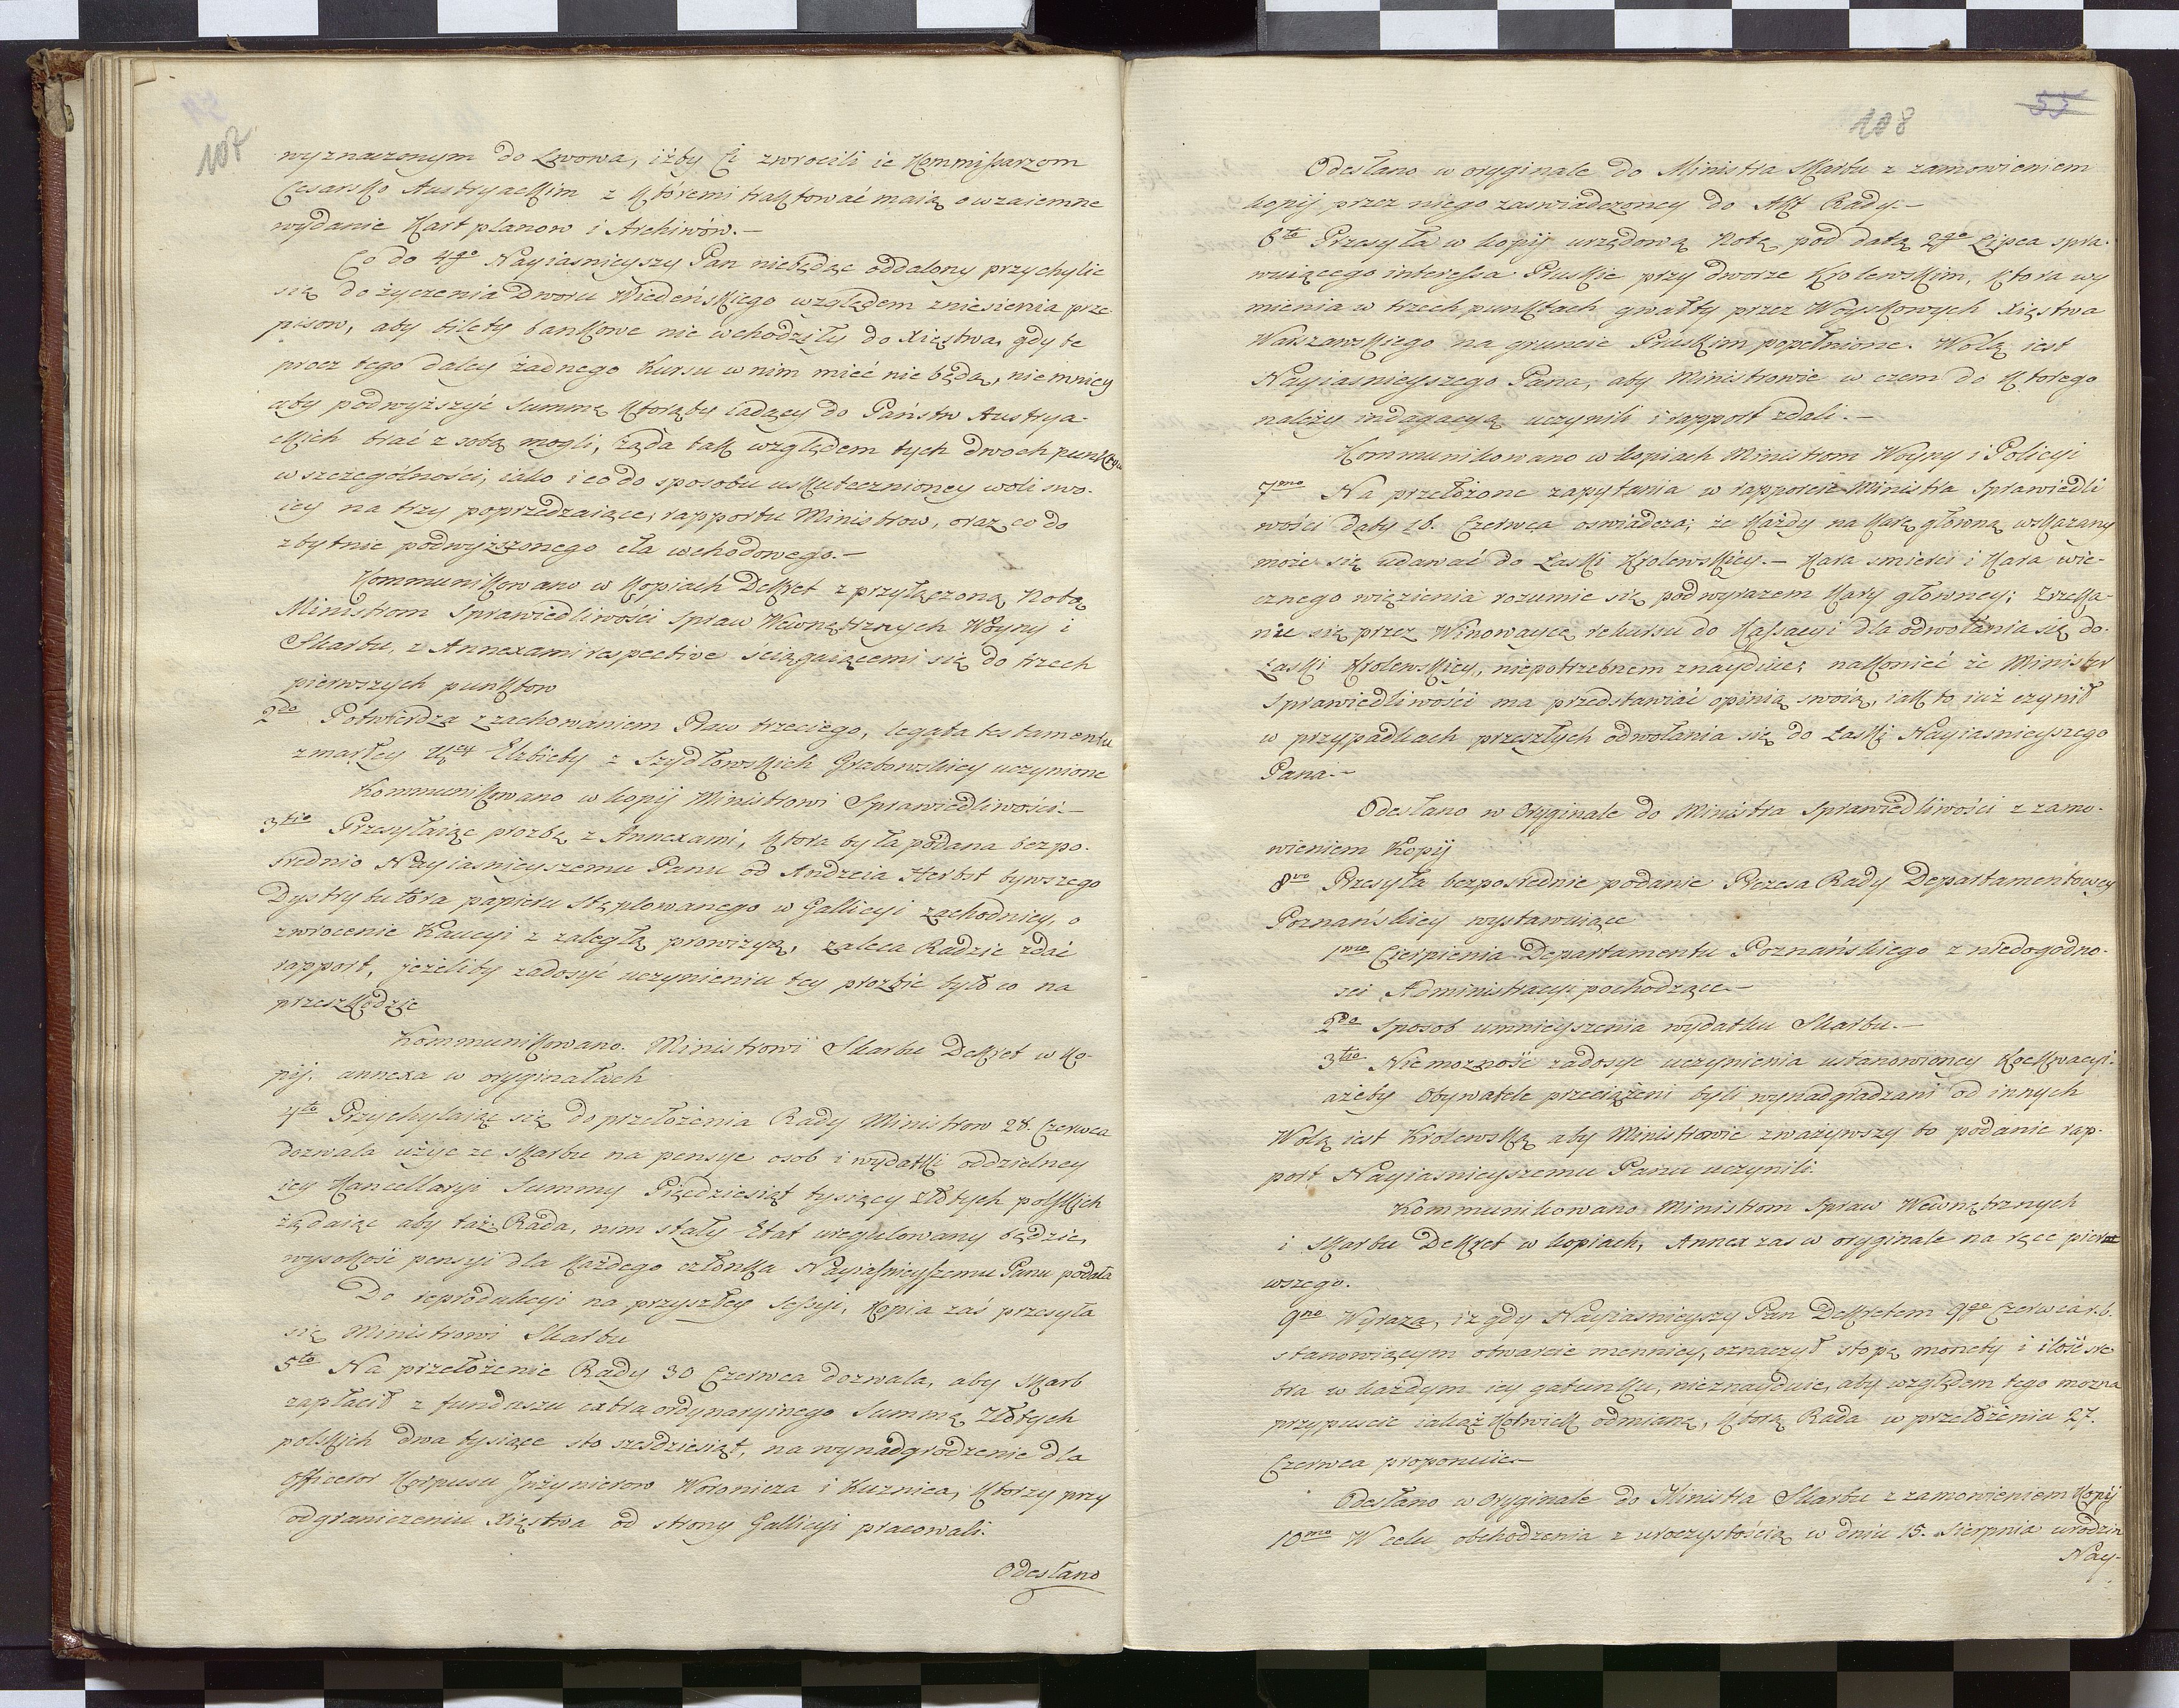 107
wyznaczonym do Lwowa, iżby Ci zwrocili ie Kommissarzom
Cesarsko Austryackim z któremi traktować maią o wzaiemne
wydanie Kart planow i Archiwów.—
Co do 4go Nayiasnieyszy Pan niebędąc oddalony przychylic
się do życzenia Dworu Wiedeńskiego względem zniesienia prze
pisow, aby bilety bankowe nie wchodziły do Xięstwa, gdy te
procz tego daley żadnego Kursu w nim mieć nie będą, niemniey
aby podwyższyć Summę ktorąby iadący do Państw Austrya-
ckich brać z sobą mogli, żąda tak względem tych dwoch punktow
w szczególności, iako i co do sposobu uskutecznioney woli swo-
iey na trzy poprzedzaiące, rapportu Ministrow, oraz co do
zbytnie podwyższonego cła wchodowego.—
Kommunikowano w Kopiach Dekret z przyłączoną Notą
Ministrom Sprawiedliwości Spraw Wewnętrznych Woyny i
Skarbu, z Annexami respective sciągaiącemi się do trzech
pierwszych punktow
2do Potwierdza z zachowaniem Praw trzeciego, legata testamentu
zmarłey Elzbiety z Szydłowskich Grabowskiey uczynione
Kommunikowano w kopij Ministrowi Sprawiedliwości.—
3tio Przesyłaiąc prozbę z Annexami, ktora była podana bezpo-
srednio Nayiasnieyszemu Panu od Andrzeia Herbst bywszego
Dystrybutora papieru stęplowanego w Gallicyi zachodniey, o
zwrocenie Kaucyi z zaległą prowizyą, zaleca Radzie zdać
rapport, jeżeliby zadosyć uczynieniu tey prozbie było co na
przeszkodzie
Kommunikowano Ministrowi Skarbu Dekret w Ko-
pij. annexa w oryginałach
4to Przychylaiąc się do przełożenia Rady Ministrow 28. Czerwca
dozwala użyc ze skarbu na pensye osob i wydatki oddzielney
iey Kancellaryi Summy Pięcdziesiąt tysięcy złotych polskich
żądaiąc aby taż Rada, nim stały Etat uregulowany będzie,
wysokość pensyi dla każdego członka Nayiasnieyszemu Panu podała
Do reprodukcyi na przyszłey Sessyi, Kopia zaś przesyła
się Ministrowi Skarbu
5to Na przełożenie Rady 30 Czerwca dozwala, aby Skarb
zapłacił z funduszu extraordynaryinego Summę Złotych
polskich dwa tysiące sto szesdziesiąt, na wynadgrodzenie dla
Officerow Korpusu Jnżynierow Woronicza i Kuznica, ktorzy przy
odgraniczeniu Xięstwa od strony Gallicyi pracowali.
Odesłano
55
108
Odesłano w oryginale do Ministra Skarbu z zamowieniem
kopij przez niego zaswiadczoney do Akt Rady.—
6to Przesyła w kopij urzędową Notę pod datą 2go Lipca spra-
wuiącego interessa Pruskie przy dworze Krolewskim, ktora wy
mienia w trzech punktach gwałty przez Woyskowych Xięstwa
Warszawskiego na gruncie Pruskim popełnione. Wolą iest
Nayiasnieyszego Pana, aby Ministrowie w czem do ktorego
należy indagacyą uczynili i rapport zdali.—
Kommunikowano w kopiach Ministrom Woyny i Policyi
7mo Na przełożone zapytania w rapporcie Ministra Sprawiedli
wości daty 16. Czerwca oswiadcza; że każdy na karę główną wskazany
może się udawać do Łaski Krolewskiey.— Kara smierci i Kara wie-
cznego więzienia rozumie się pod wyrazem Kary główney; Zrzeka-
nie się przez Winowaycę rekursu do Kassacyi dla odwołania się do
Łaski Krolewskiey, niepotrzebnem znayduie; nakoniec że Minister
Sprawiedliwości ma przedstawiać opinią swoią, iak to iuż czynił
w przypadkach przeszłych odwołania się do Łaski Nayiasnieyszego
Pana.—
Odesłano w Oryginale do Ministra Sprawiedliwości z zamo-
wieniem Kopij
8vo Przesyła bezposrednie podanie Prezesa Rady Departamentowey
Poznańskiey wystawuiące
1mo Cierpienia Departamentu Poznańskiego z niedogodno-
sci Administracyi pochodzące.—
2do Sposob umnieyszenia wydatku Skarbu.—
3tio Niemozność zadosyc uczynienia ustanowioney Koekwacyi:
ażeby Obywatele przeciążeni byli wynadgradzani od innych
Wolą iest Krolewską aby Ministrowie zważywszy to podanie rap-
port Nayiasnieyszemu Panu uczynili.
Kommunikowano Ministrom Spraw Wewnętrznych
i Skarbu Dekret w kopiach, Annex zas w oryginale na ręce pier
wszego.
9no Wyraza, iz gdy Nayiasnieyszy Pan Dekretem 9go Czerwca r. b.
stanowiącym otwarcie mennicy, oznaczył stopę monety i ilość sre
bra w każdym iey gatunku, nieznayduie, aby względem tego można
przypuscic iakąż kolwiek odmianę, ktorą Rada w przełożeniu 27.
Czerwca proponuie.—
Odesłano w Oryginale do Ministra Skarbu z zamowieniem Kopij
10mo W celu obchodzenia z uroczystością w dniu 15. Sierpnia urodzin
Nay-